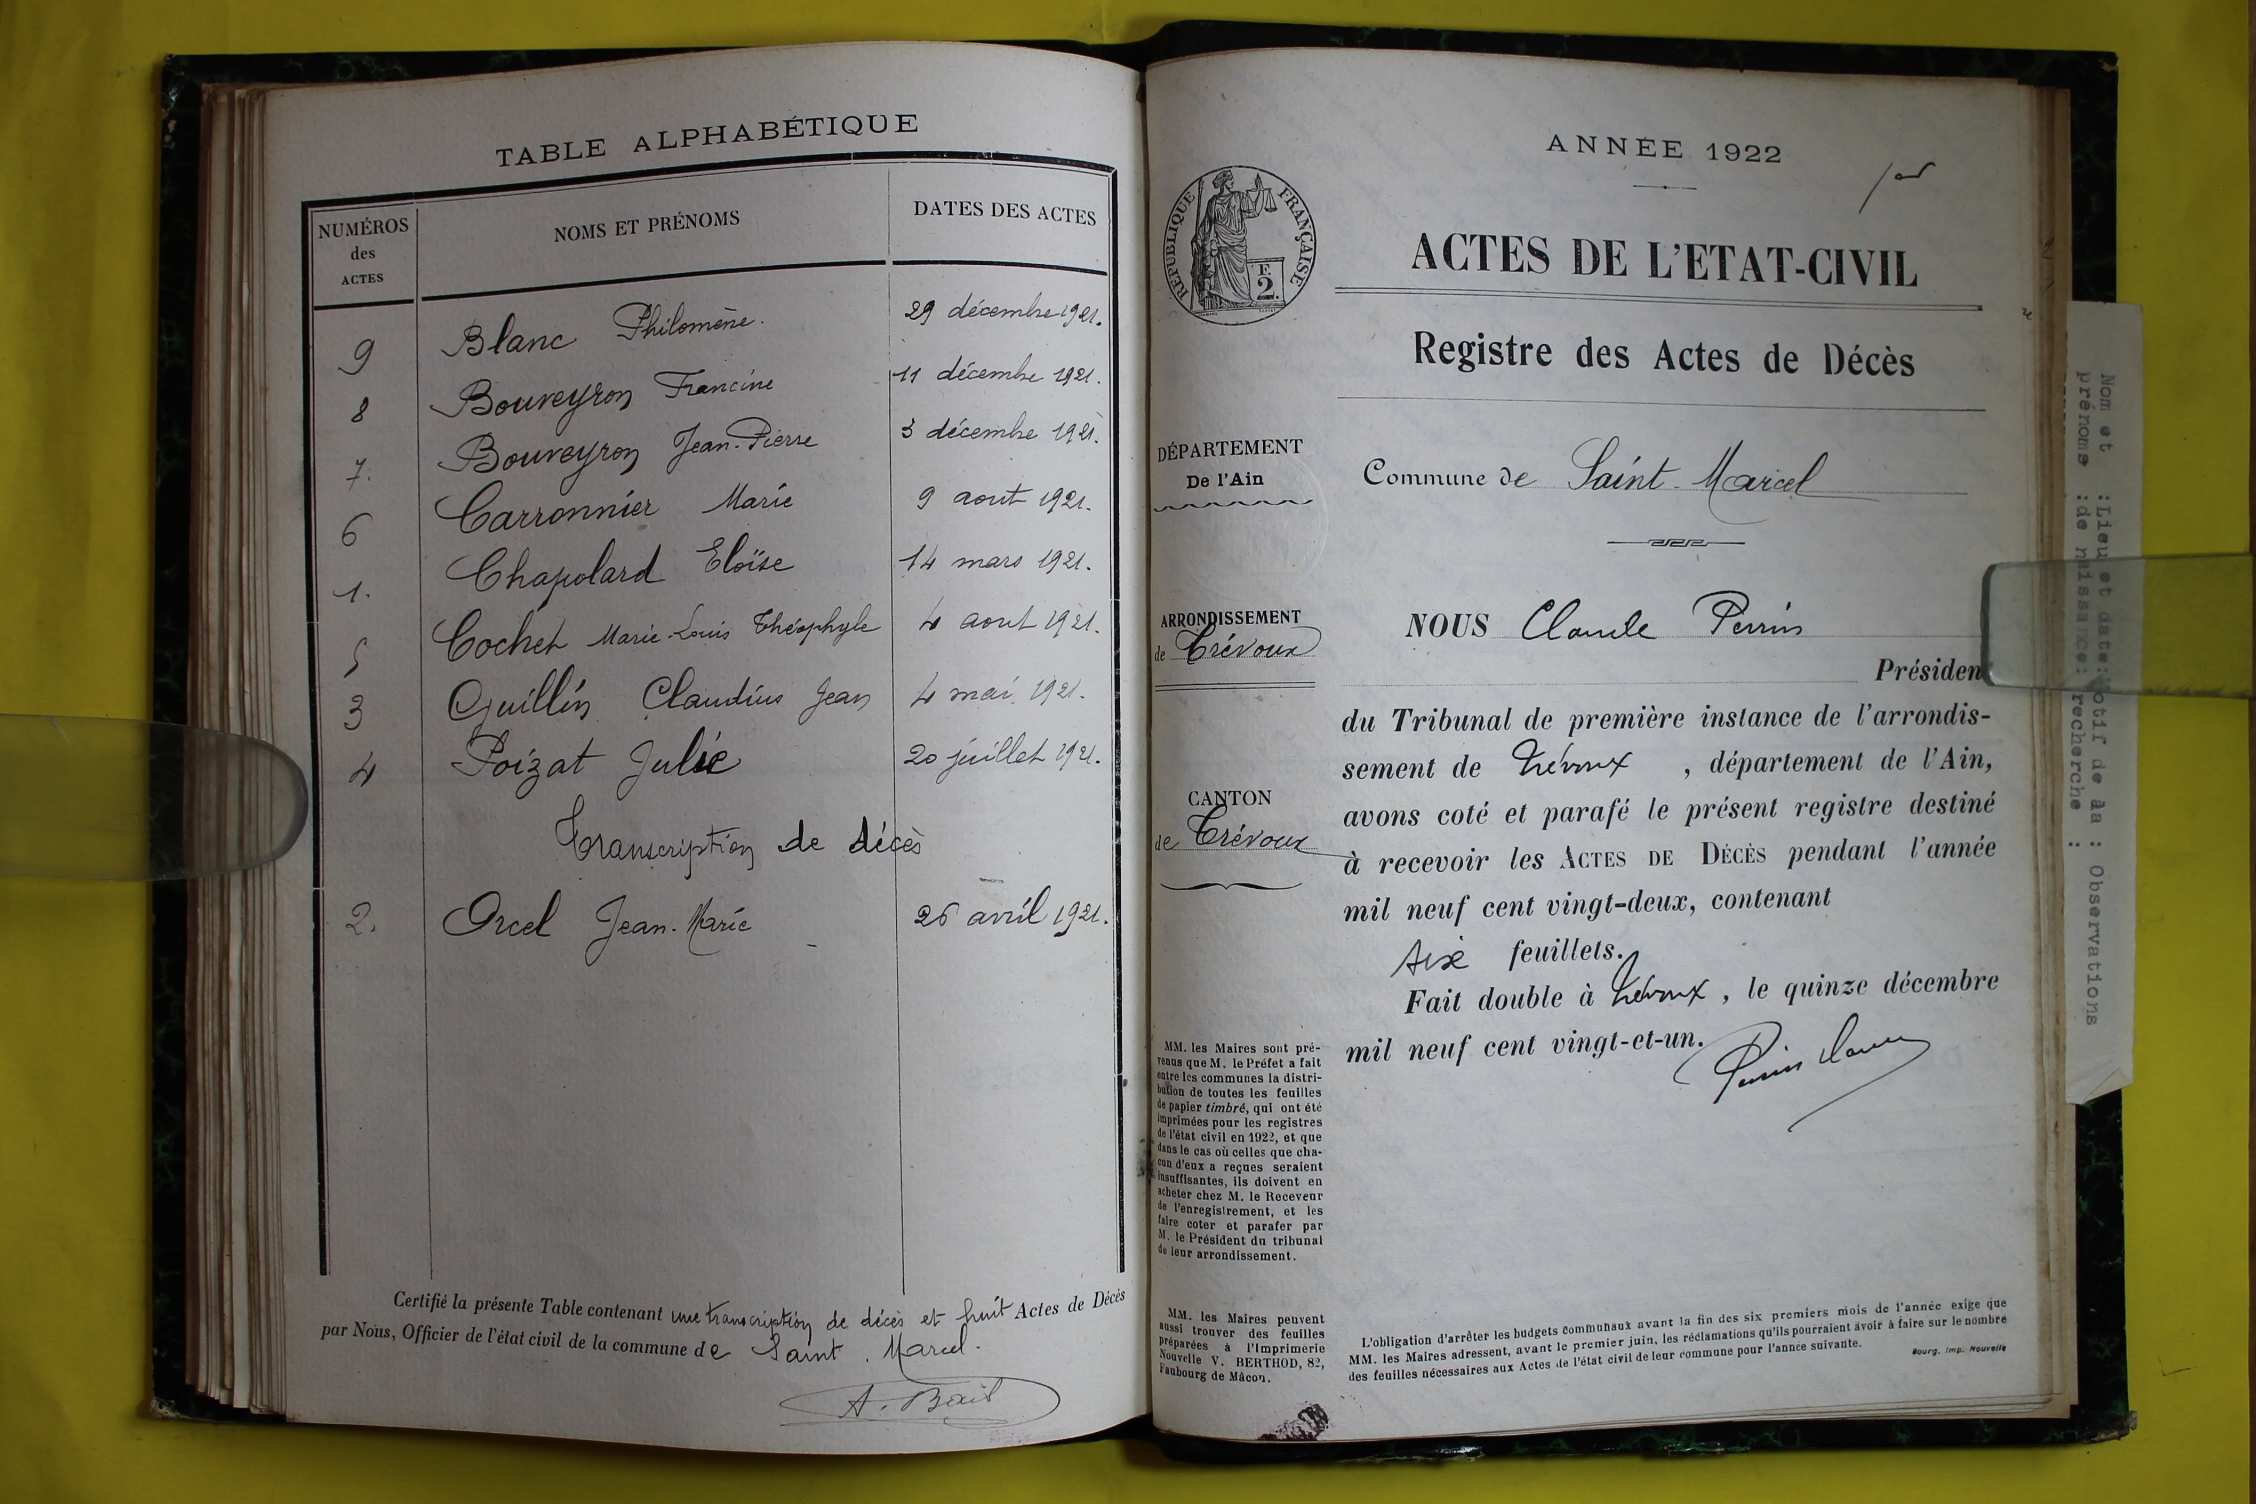 TABLE ALPHABÉTIQUE
NUMÉROS des ACTES
NOMS ET PRÉNOMS
DATES DES ACTES
9 Blanc Philomène. 29 décembre 1921.
8 Bouveyron Francine 11 décembre 1921.
7. Bouveyron Jean-Pierre 3 décembre 1921.
6 Carronnier Marie 9 aout 1921.
1. Chapolard Eloïse 14 mars 1921.
5 Cochet Marie-Louis Théophyle 4 aout 1921.
3 Guillin Claudius Jean 4 mai 1921.
4 Poizat Julie 20 juillet 1921.
Transcription de décès
2. Orcel Jean-Marie 26 avril 1921.
Certifié la présente Table contenant une transcription de décès et huit Actes de Décès
par Nous, Officier de l'état civil de la commune de Saint Marcel.
A. Bail
ANNÉE 1922
RÉPUBLIQUE FRANÇAISE
F.
2.
ACTES DE L'ETAT-CIVIL
Registre des Actes de Décès
DÉPARTEMENT
De l'Ain
Commune de Saint-Marcel
ARRONDISSEMENT
de Trévoux
CANTON
de Trévoux
NOUS Claude Perrin
Présiden
du Tribunal de première instance de l'arrondis-
sement de Trévoux, département de l'Ain,
avons coté et parafé le présent registre destiné
à recevoir les ACTES DE DÉCÈS pendant l'année
mil neuf cent vingt-deux, contenant
six feuillets.
Fait double à Trévoux, le quinze décembre
mil neuf cent vingt-et-un.
Perrin Claude
MM. les Maires sont pré-
venus que M. le Préfet a fait
entre les communes la distri-
bution de toutes les feuilles
de papier timbré, qui ont été
imprimées pour les registres
de l'état civil en 1922, et que
dans le cas où celles que cha-
cun d'eux a reçues seraient
insuffisantes, ils doivent en
acheter chez M. le Receveur
de l'enregistrement, et les
faire coter et parafer par
M. le Président du tribunal
de leur arrondissement.
MM. les Maires peuvent
aussi trouver des feuilles
préparées à l'Imprimerie
Nouvelle V. BERTHOD, 82,
Faubourg de Mâcon.
L'obligation d'arrêter les budgets communaux avant la fin des six premiers mois de l'année exige que
MM. les Maires adressent, avant le premier juin, les réclamations qu'ils pourraient avoir à faire sur le nombre
des feuilles nécessaires aux Actes de l'état civil de leur commune pour l'année suivante.
Bourg. Imp. Nouvelle
Nom et :Lieu et date: otif de la : Observations
prénoms :de naissance: recherche :